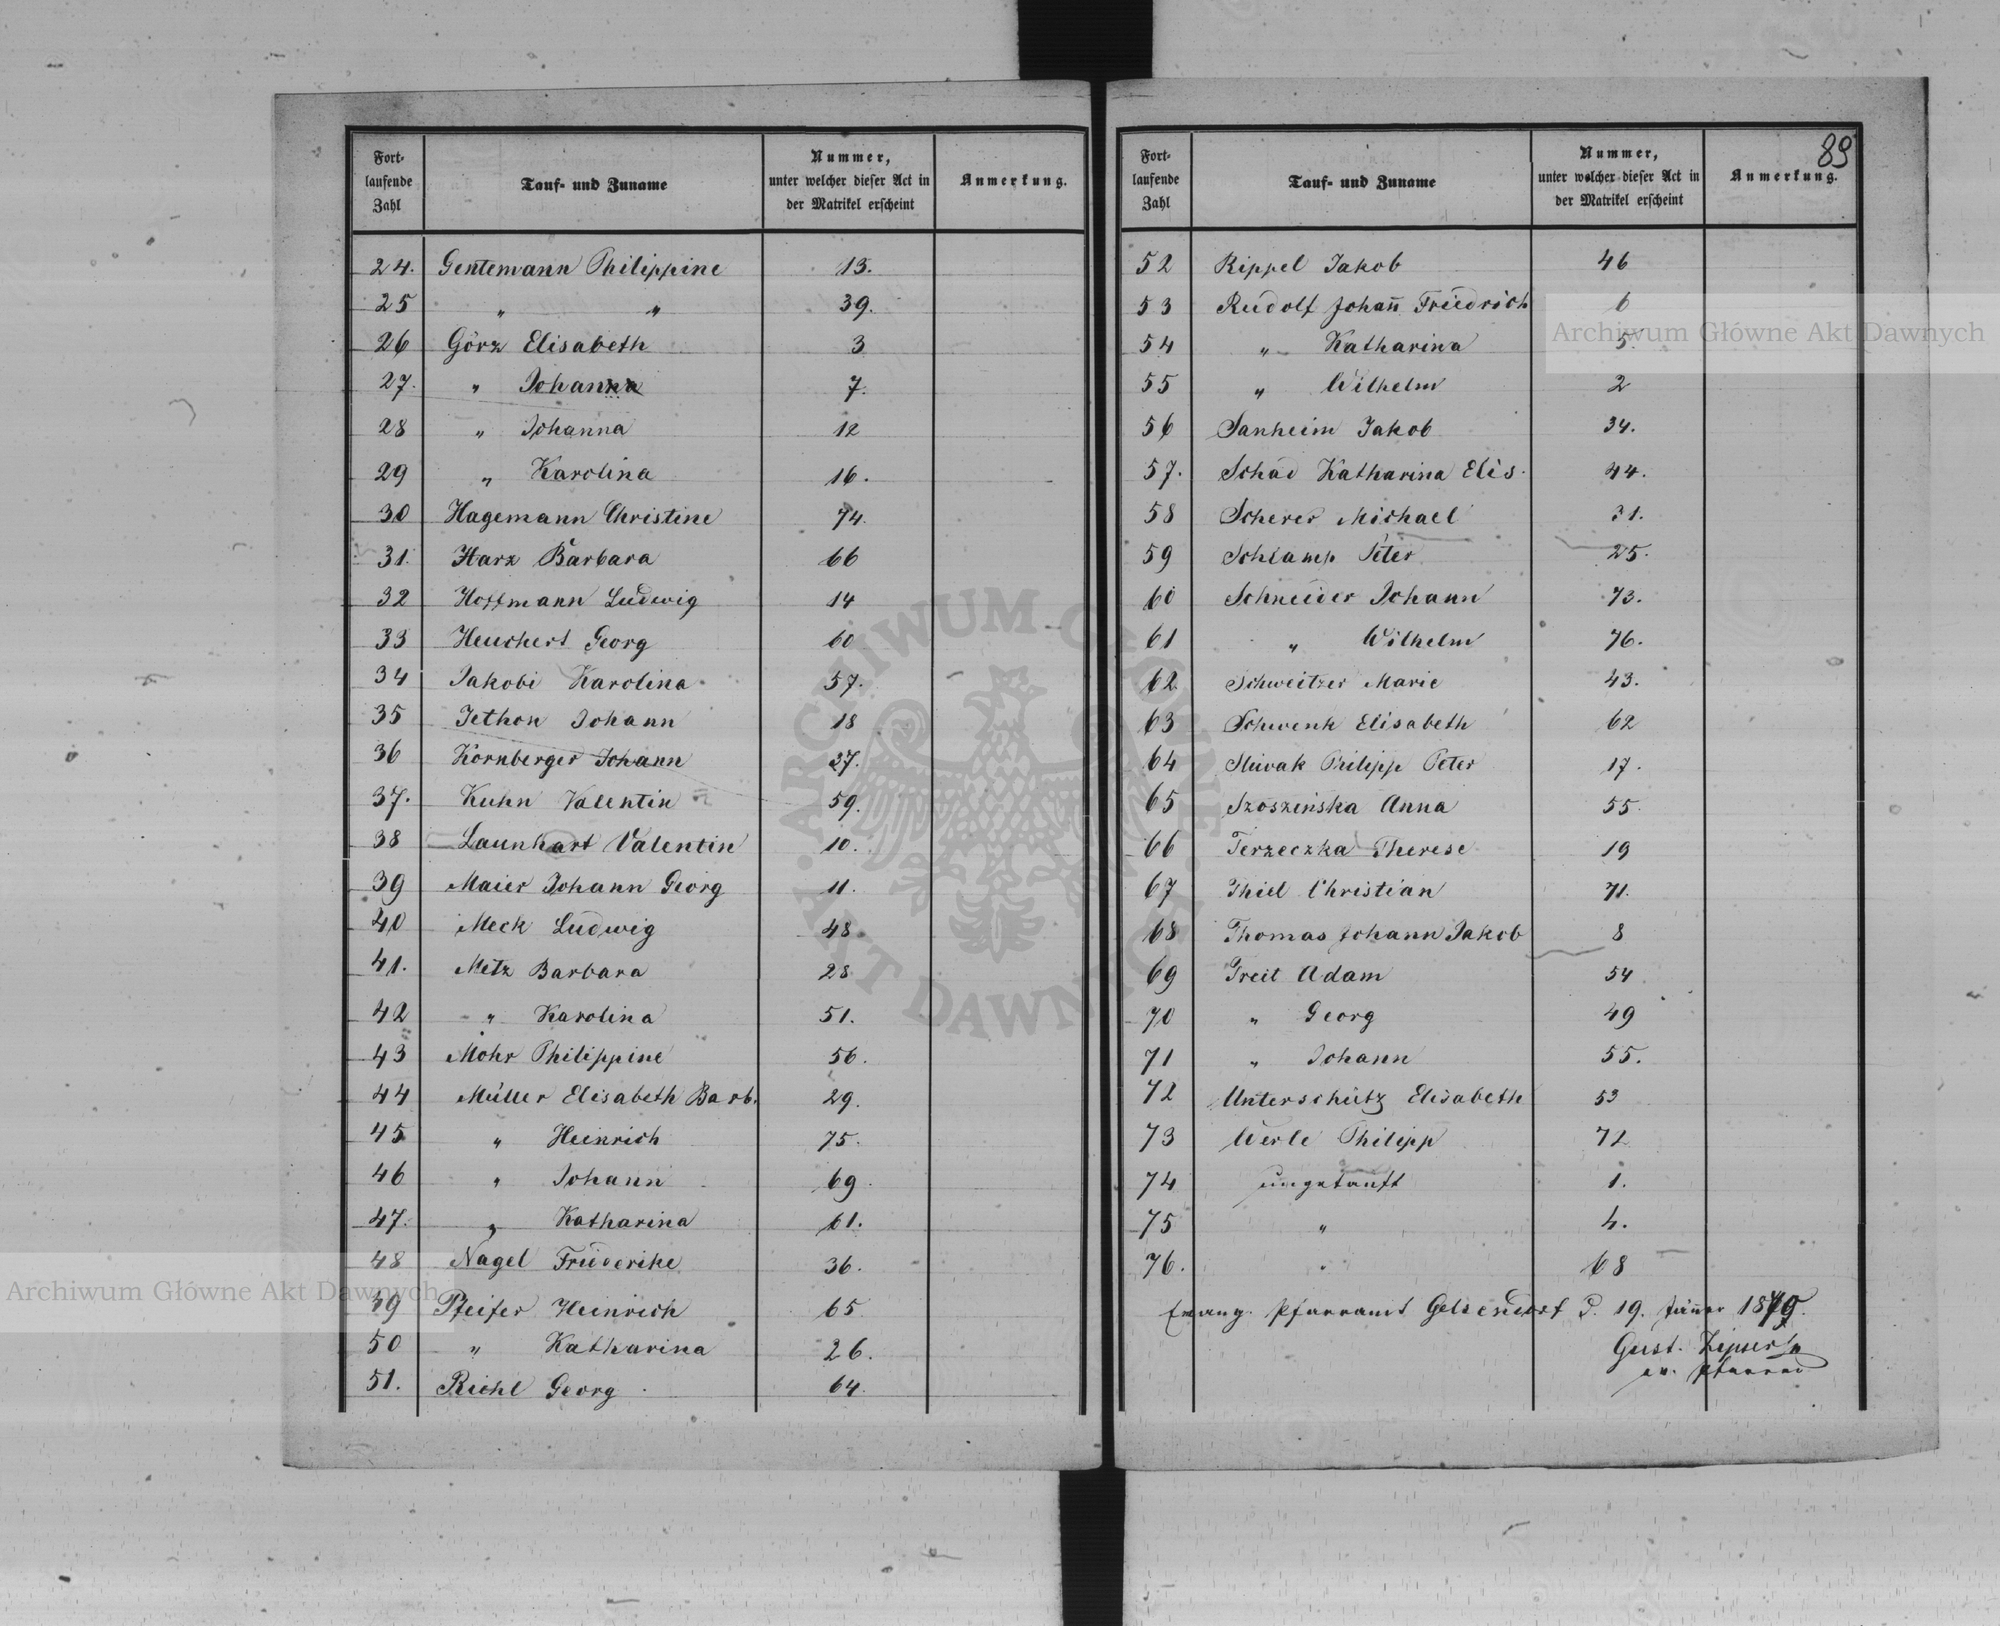 89
Fort-
laufende
Zahl
Tauf- und Zuname
Nummer,
unter welcher dieser Act in
der Matrikel erscheint
Anmerkung.
24. Gentemann Philippine 13.
25 " " 39.
26 Görz Elisabeth 3
27. " Johanna 7.
28 " Johanna 12
29 " Karolina 16.
30 Hagemann Christine 74.
31. Harz Barbara 66
32 Hoffmann Ludwig 14
33 Heuchert Georg 60
34 Jakobi Karolina 57.
35 Jethon Johann 18
36 Kornberger Johann 27.
37. Kuhn Valentin 59.
38 Launhart Valentin 10.
39 Maier Johann Georg 11.
40 Meck Ludwig 48
41. Metz Barbara 28
42 " Karolina 51.
43 Mohr Philippine 56.
44 Müller Elisabeth Barb. 29.
45 " Heinrich 75.
46 " Johann 69.
47. " Katharina 61.
48 Nagel Friederike 36.
49 Pfeifer Heinrich 65.
50 " Katharina 26.
51. Richl Georg 64.
Fort-
laufende
Zahl
Tauf- und Zuname
Nummer,
unter welcher dieser Act in
der Matrikel erscheint
Anmerkung.
52 Rippel Jakob 46
53 Rudolf Johañ Friedrich 6
54 " Katharina 5.
55 " Wilhelm 2
56 Sanheim Jakob 34.
57. Schad Katharina Elis. 44.
58 Scherer Michael 31.
59 Schlamp Peter 25.
60 Schneider Johann 73.
61 " Wilhelm 76.
62 Schweitzer Marie 43.
63 Schwenk Elisabeth 62
64 Philipp Peter 17.
65 Szoszeńska Anna 55.
66 Terzeczka Therese 19
67 Thiel Christian 71.
68 Thomas Johann Jakob 8
69 Treit Adam 54
70 " Georg 49
71 " Johann 55.
72 Unterschütz Elisabeth 53
73 Werle Philipp 72
74 ungetauft 1.
75 " 4.
76. " 68
Evang. Pfarramt Gelsendorf d. 19. Jäner 1879.
Gust. Zipser
ev. Pfarrer
Archiwum Główne Akt Dawnych
Archiwum Główne Akt Dawnych
ARCHIWUM GŁÓWNE AKT DAWNYCH